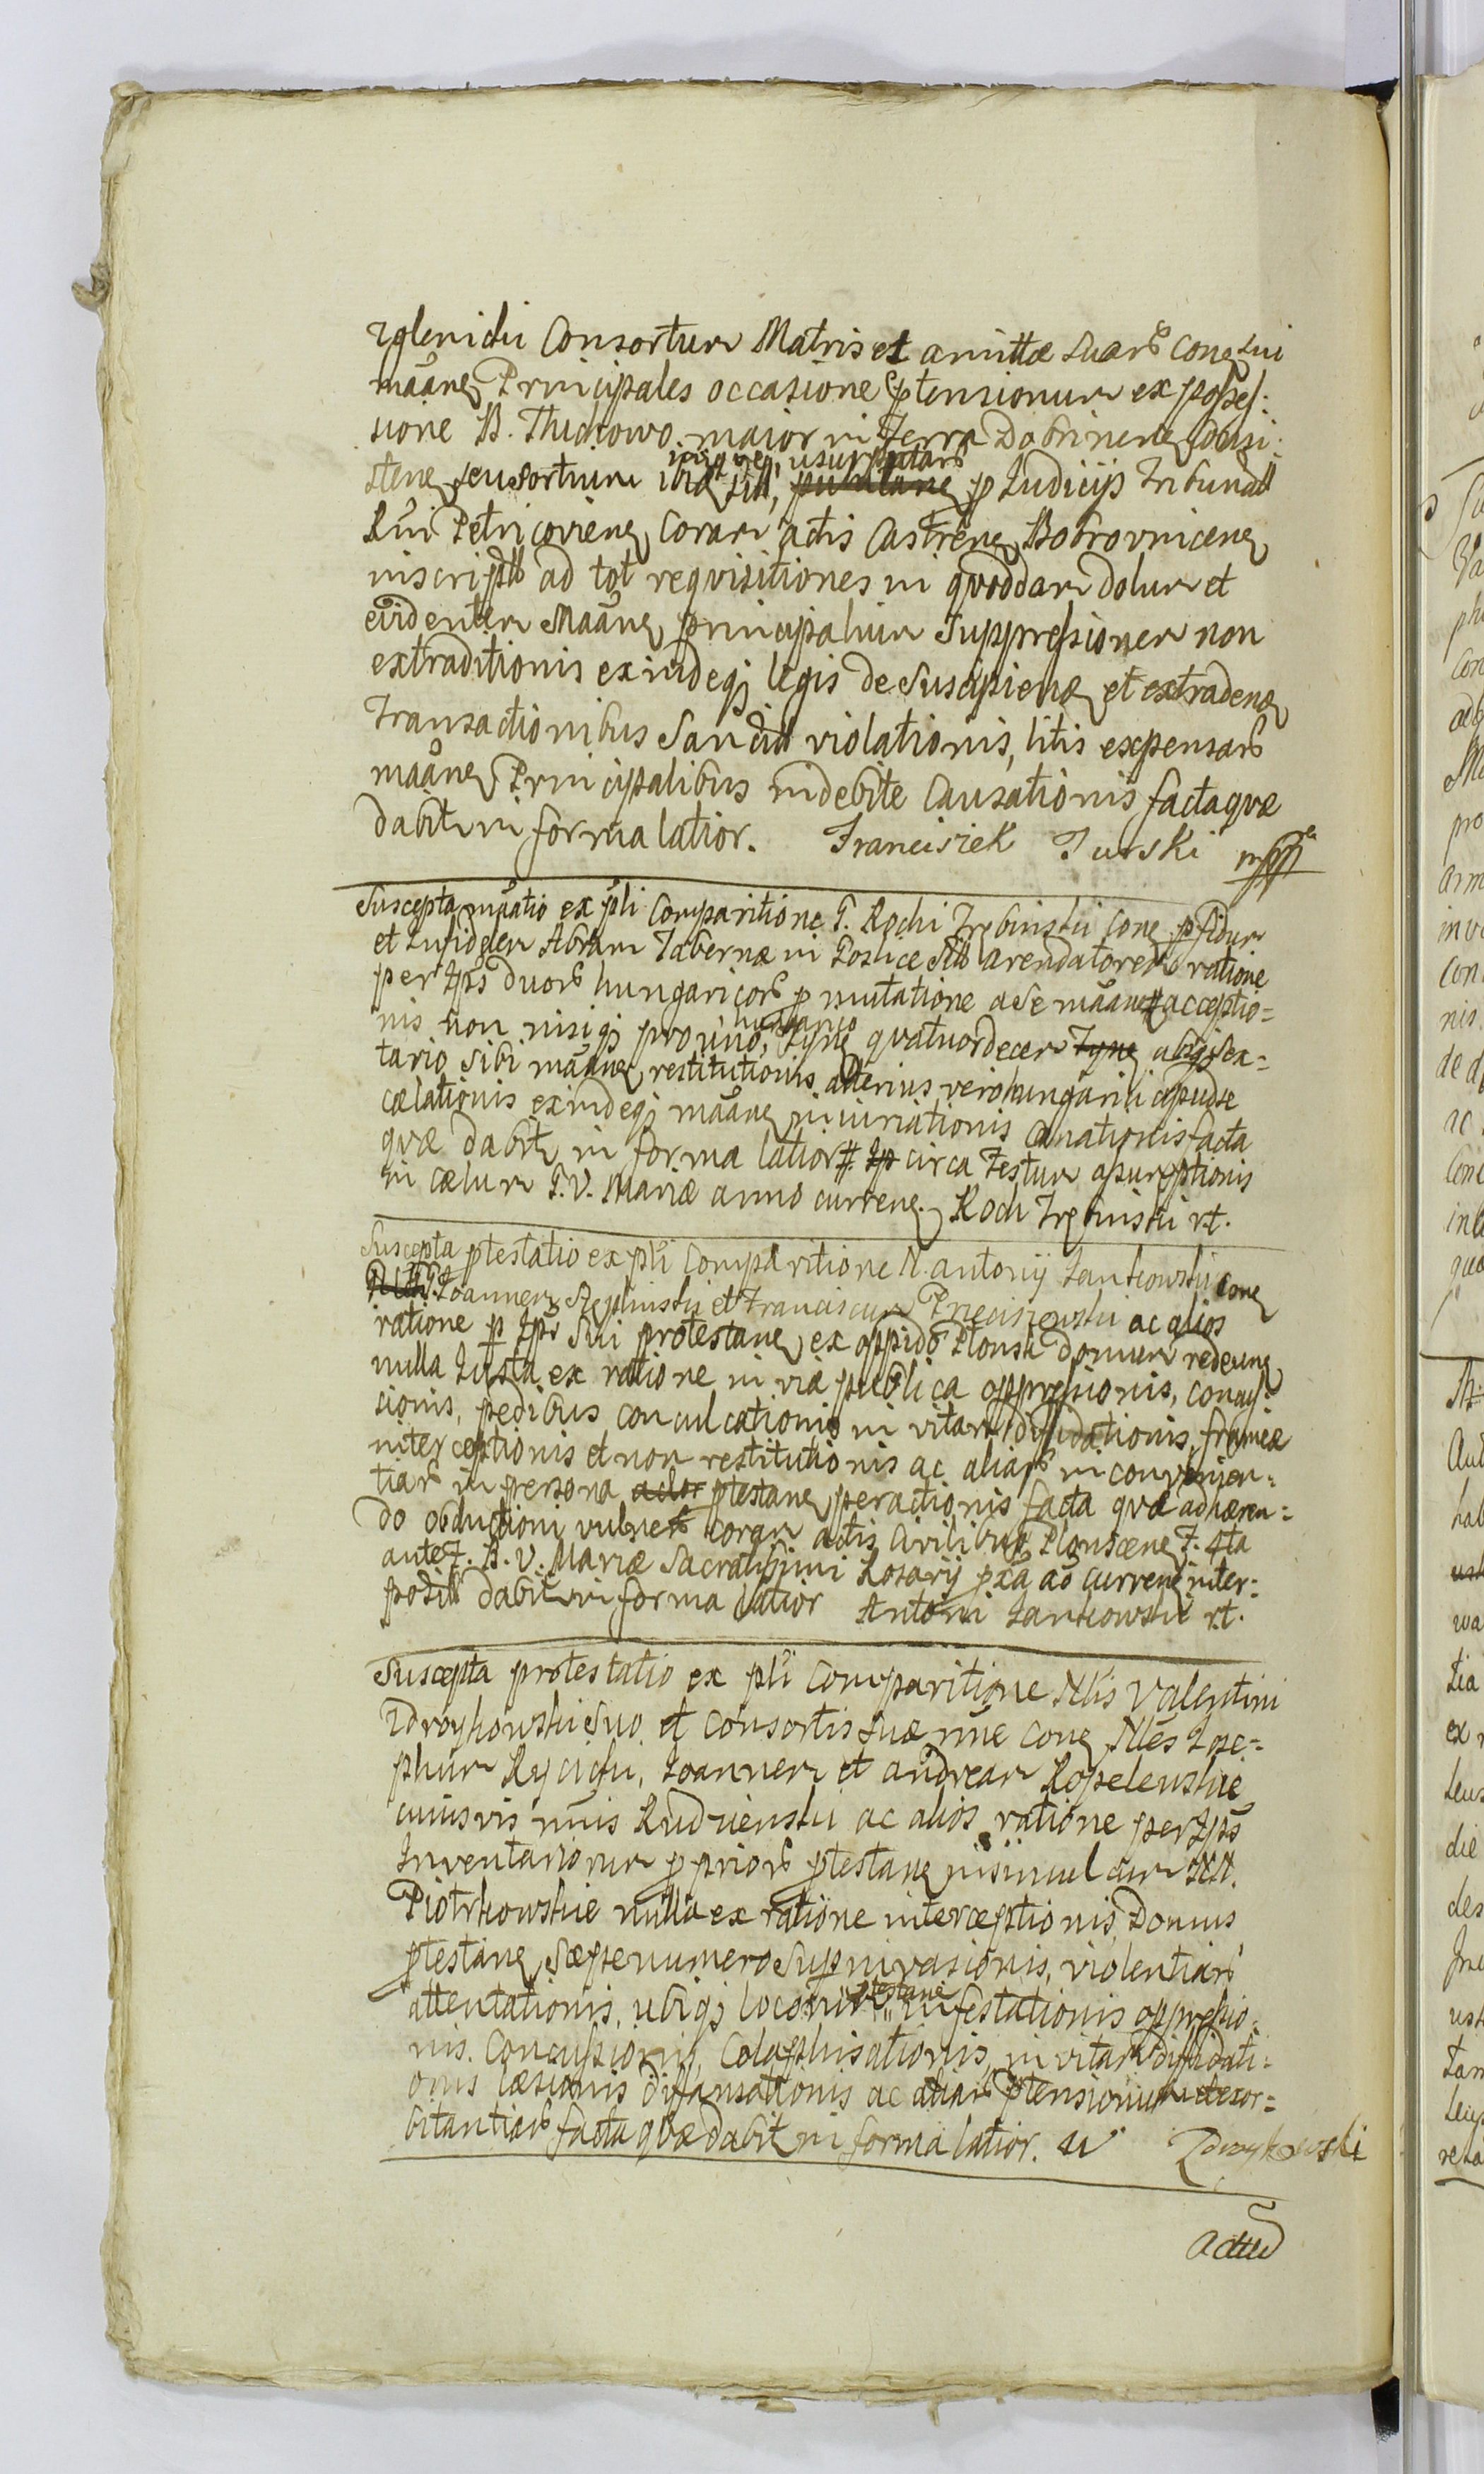 Zglenicki Consortum Matris et amittæ suarū conq sui
māāneq Principales occasione ptensionum ex posses:
sione B. Thuchowo maior in Terra Dobrinenq consi:
stenq seu sortium ibid sitt, inique usurpatarū p Judicijs Tribunatt
Rūi Petricovienq coram actis Castrenq Bobrovnicenq
inscriptt ad tot reqvisitiones in qvoddam dolum et
evidentem Māāneq principalium suppressionem non
extraditionis exindeqz legis de suscipienq et extradenq
Transactionibus Sancitt violationis, litis expensarū
māāneq Principalibus indebite Causationis facta qvæ
dabitr in forma latior. Franciszek Turski mpp
Suscepta māātio ex pīi Comparitione G. Rochi Trębinski conq pfidum
et Infidelem Abram Tabernæ in Goslice Sitt arendatorem ratione
per Ips duorū hungaricorū p mutatione a se māāneq acceptio=
nis non nisiqz pro uno hungarico, Tynf qvatuordecem absqz ex=
tario sibi māāneq restitutionis alterius vero hungarici apud se
cælationis exindeqz māāneq iniuriationis damnationis facta
qvæ dabitr in forma latior circa Festum assumptionis
in cælum B. V. Mariæ anno currenq. Roch Trębinski rt.
Suscepta ptestatio ex pīi Comparitione N. Antonij Jankowski conq
Joannem Stęplinski et Franciscum Prieciszewski ac alios
ratione p Ips sui protestanq ex oppido Plonsk domum redeunq
nulla Justa ex ratione in via publica oppressionis, concus=
sionis, pedibus conculcationis in vitam diffidationis, frameæ
interceptionis et non restitutionis ac aliarū inconvenien=
tiarū in persona ptestanq peractionis facta qvæ adhæren=
do obductioni vulnerū coram actis Civilibus Plonscenq F. 4ta
ante F. B. V. Mariæ Sacratissimi Rosarij pxa aō currenq inter=
positt dabitr in forma latior Antoni Jankowski rt.
Suscepta protestatio ex pīi Comparitione Nlis Valentini
Zdroykowski suo et consortis suæ nīne conq Nles Jose=
phum Rycicki, Joannem et Andream Kopelewskie
cuiusvis nīnis Rudzienski ac alios ratione per Ips
Inventariorum ppriorū ptestanq insimul cum NN.
Piotrkowskie nulla ex ratione interceptionis, Domus
ptestanq sæpenumero superinvasionis, violentiarū
attentationis, ubiqz locorum ptestanq infestationis oppressio=
nis, Concussionis, Colaphisationis, in vitam diffidati=
onis læsionis diffamationis ac aliarū ptensionum et exor=
bitantiarū facta qvæ dabitr in forma latior. W Zdroykowski
Actu